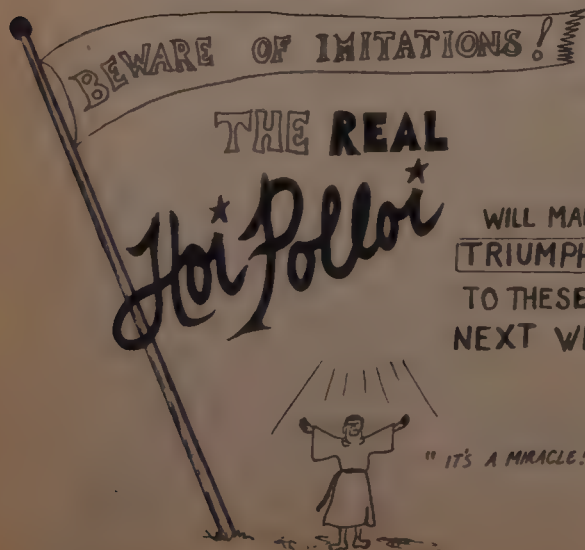 BEWARE OF IMITATIONS!
THE REAL
Hoi Polloi
WILL
TO THESE
NEXT
"IT'S A MIRACLE!